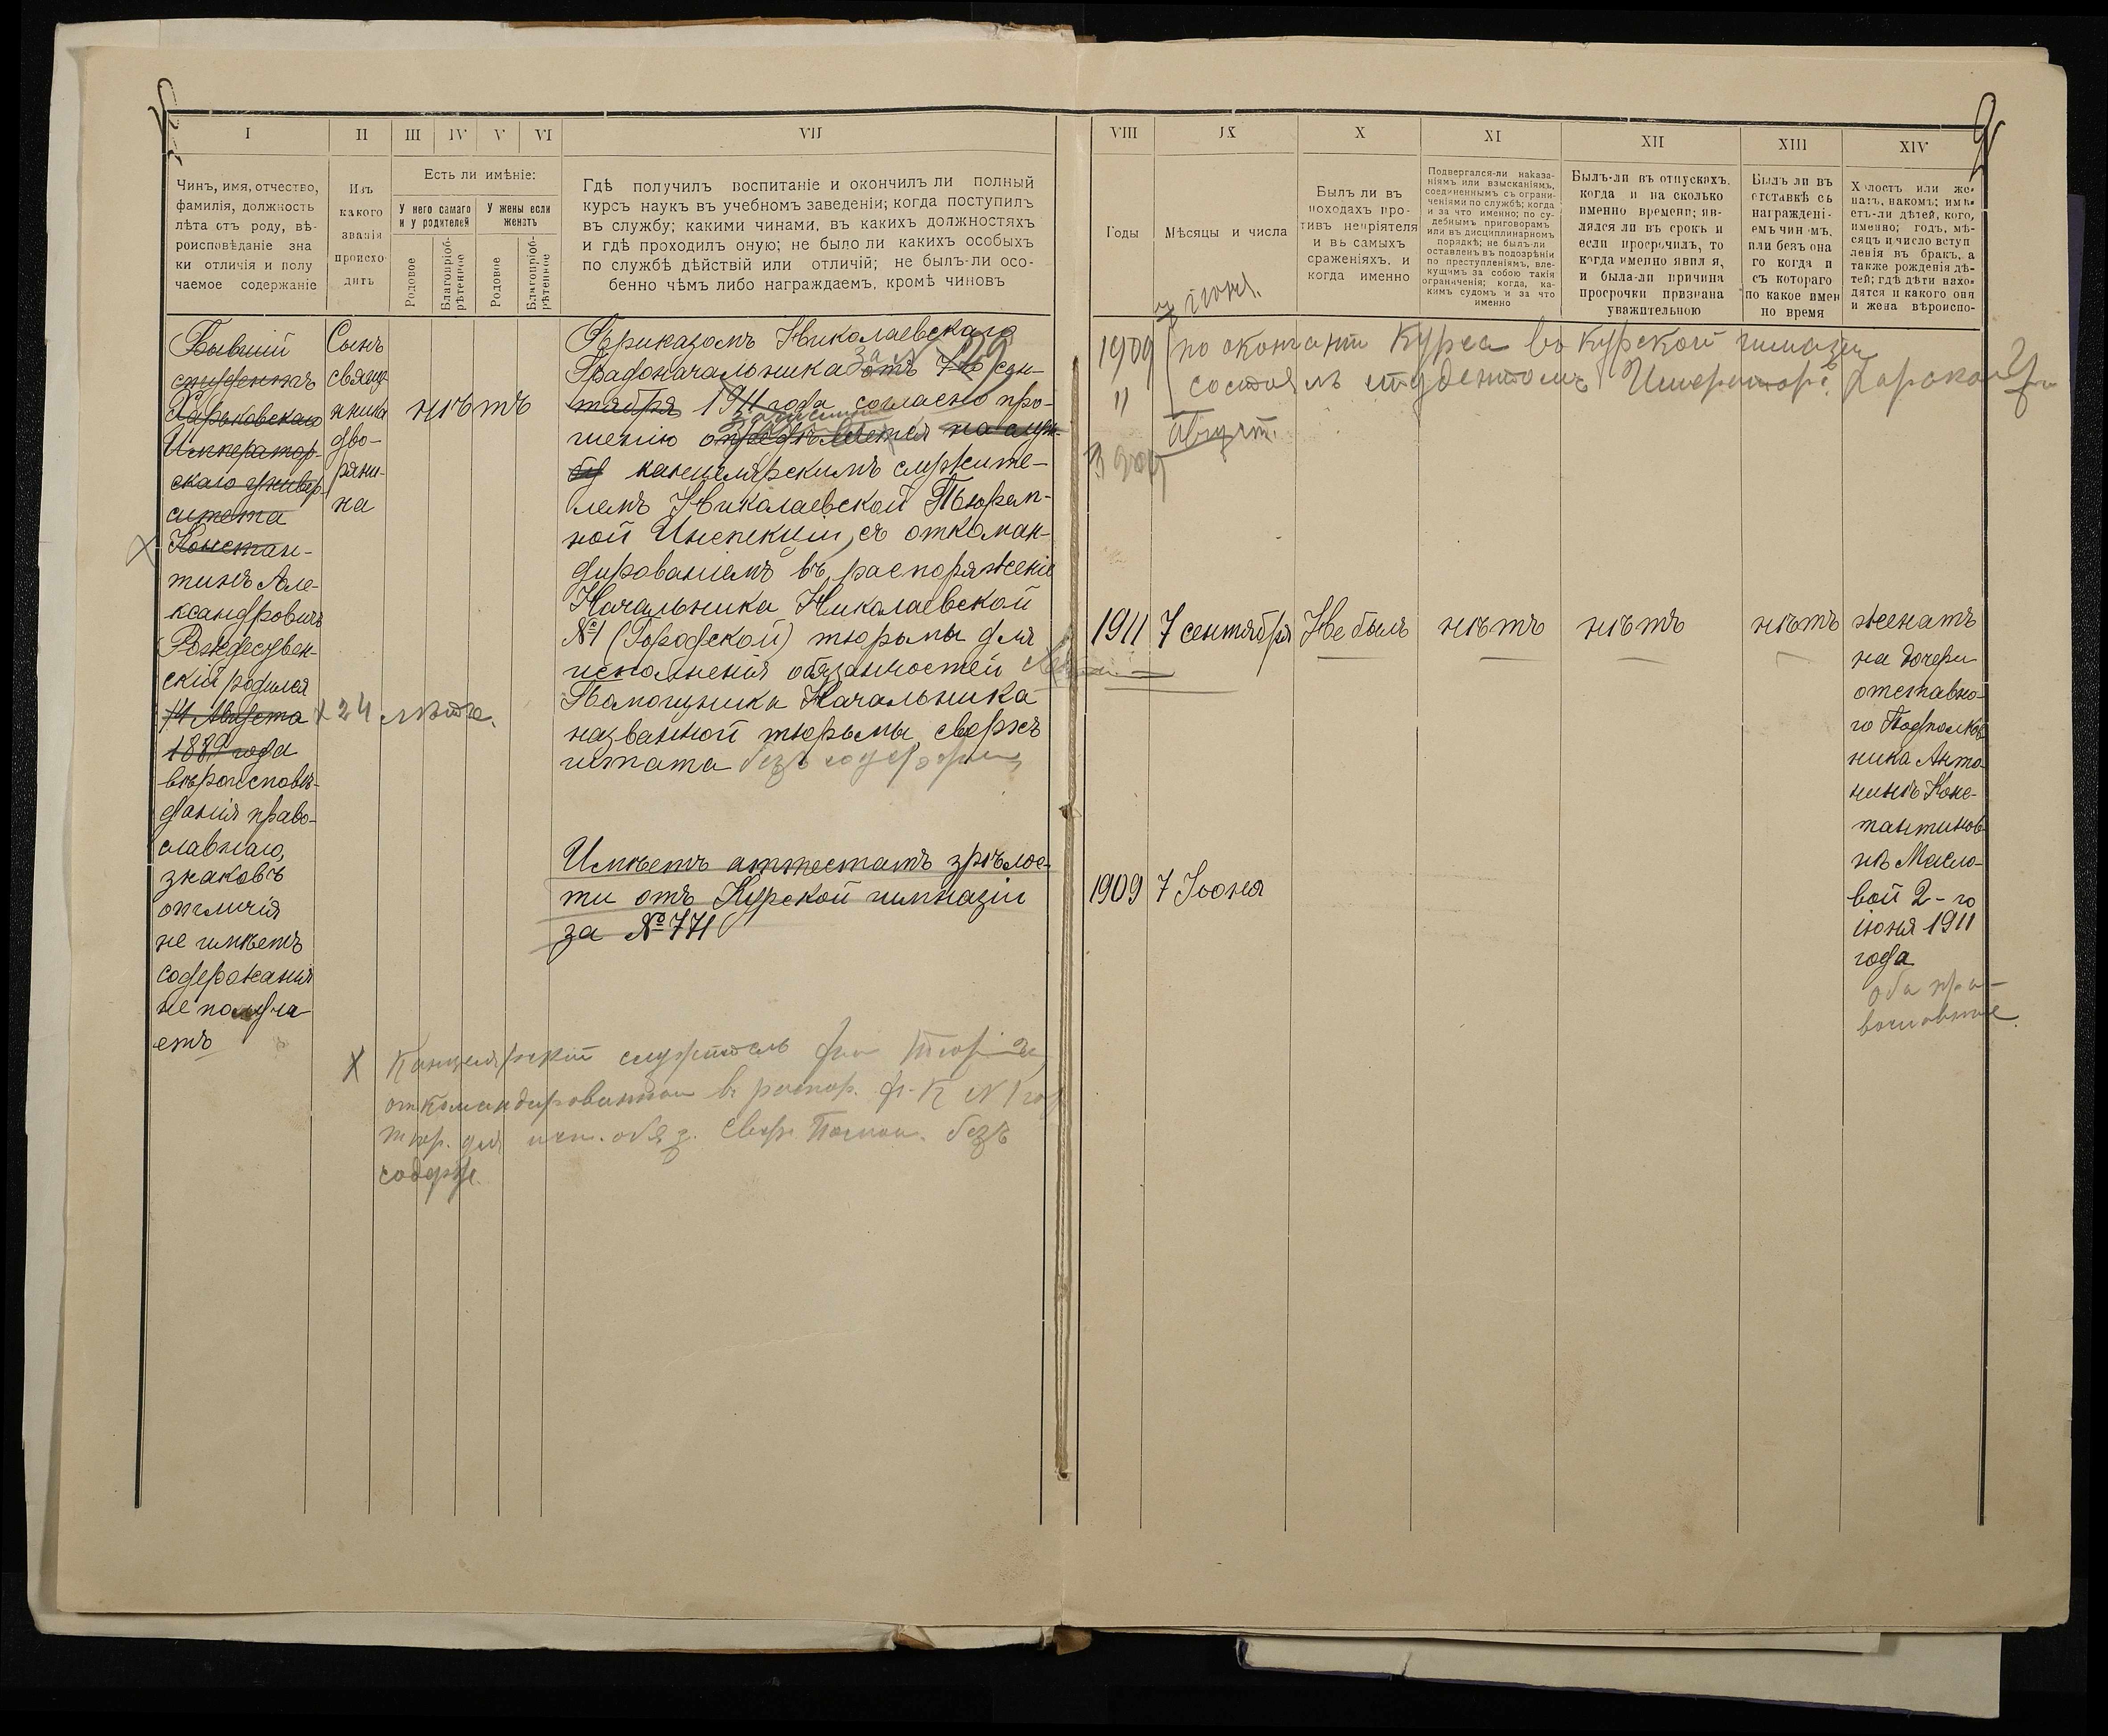 I
II
III
IV
V
VI
VII
Чинъ, имя, отчество,
фамилія, должность
лѣта отъ роду, вѣ-
роисповѣданіе зна
ки отличія и полу
чаемое содержаніе
Изъ
какого
званія
происхо-
дитъ
Есть ли имѣніе:
У него самаго
и у родителей
У жены если
женатъ
Родовое
Благопріоб-
рѣтенное
Родовое
Благопріоб-
рѣтенное
Гдѣ получилъ воспитаніе и окончилъ ли полный
курсъ наукъ въ учебномъ заведеніи; когда поступилъ
въ службу; какими чинами, въ какихъ должностяхъ
и гдѣ проходилъ оную; не было ли какихъ особыхъ
по службѣ дѣйствій или отличій; не былъ-ли осо-
бенно чѣмъ либо награждаемъ, кромѣ чиновъ
Бывшій
студентъ
Харьковскаго
Император-
скаго универ-
ситета
Констан-
тинъ Але-
ксандровичъ
Рождествен-
скій родился
14 Августа
1889 года
вѣроисповѣ-
данія право-
славнаго,
знаковъ
отличія
не имѣетъ
содержанія
не получа-
етъ
х 24 лѣтъ.
Сынъ
свящ-
нника
дво-
ряни-
на
нѣтъ
Приказомъ Николаевскаго
Градоначальника отъ 7 сен-
за № 129
тября 1911 года согласно про-
шенію опредѣляется на служ-
бу канцелярскимъ служите-
лемъ Николаевской Тюрем-
ной Инспекціи, съ откоман-
дированіемъ въ распоряженіе
Начальника Николаевской
№1 (Городской) тюрьмы для
исполненія обязанностей
Помощника Начальника
названной тюрьмы, сверхъ
штата безъ
Имѣетъ аттестатъ зрѣлос-
ти отъ Курской гимназіи
за № 771
х Канцелярскій служитель
откомандированном в распор. №1 гор
тюр. для исп. обяз. сверх. Помощ. безъ
содерж.
VIII
IX
X
XI
XII
XIII
XIV
Годы
Мѣсяцы и числа
Былъ ли въ
походахъ про-
тивъ непріятеля
и въ самыхъ
сраженіяхъ, и
когда именно
Подвергался-ли наказа-
ніямъ или взысканіямъ,
соединеннымъ съ ограни-
ченіями по службѣ; когда
и за что именно; по су-
дебнымъ приговорамъ
или въ дисциплинарномъ
порядкѣ; не былъ-ли
оставленъ въ подозрѣніи
по преступленіямъ, вле-
кущимъ за собою такія
ограниченія; когда, ка-
кимъ судомъ и за что
именно
Былъ-ли въ отпускахъ,
когда и на сколько
именно времени; яв-
лялся ли въ срокъ и
если просрочилъ, то
когда именно явился,
и была-ли причина
просрочки признана
уважительною
Былъ ли въ
отставкѣ съ
награждені-
емъ чиномъ,
или безъ она
го когда и
съ котораго
по какое имен
но время
Холостъ или же-
натъ, на комъ; имѣ-
етъ-ли дѣтей, кого,
именно; годъ, мѣ-
сяцъ и число вступ
ленія въ бракъ, а
также рожденія дѣ-
тей; гдѣ дѣти нахо-
дятся и какого они
и жена вѣроиспо-
7 июня.
1909 по окончаніи курса въ курской гимназіи
" состоялъ студентомъ Император.
Август.
1911
7 сентября
Не былъ
нѣтъ
нѣтъ
нѣтъ
1909
7 Іюня
женатъ
на дочери
отставно-
го Подполков-
ника Анто-
нинѣ Конс-
тантинов-
нѣ Масло-
вой 2-го
іюня 1911
года
оба пра-
вославные.